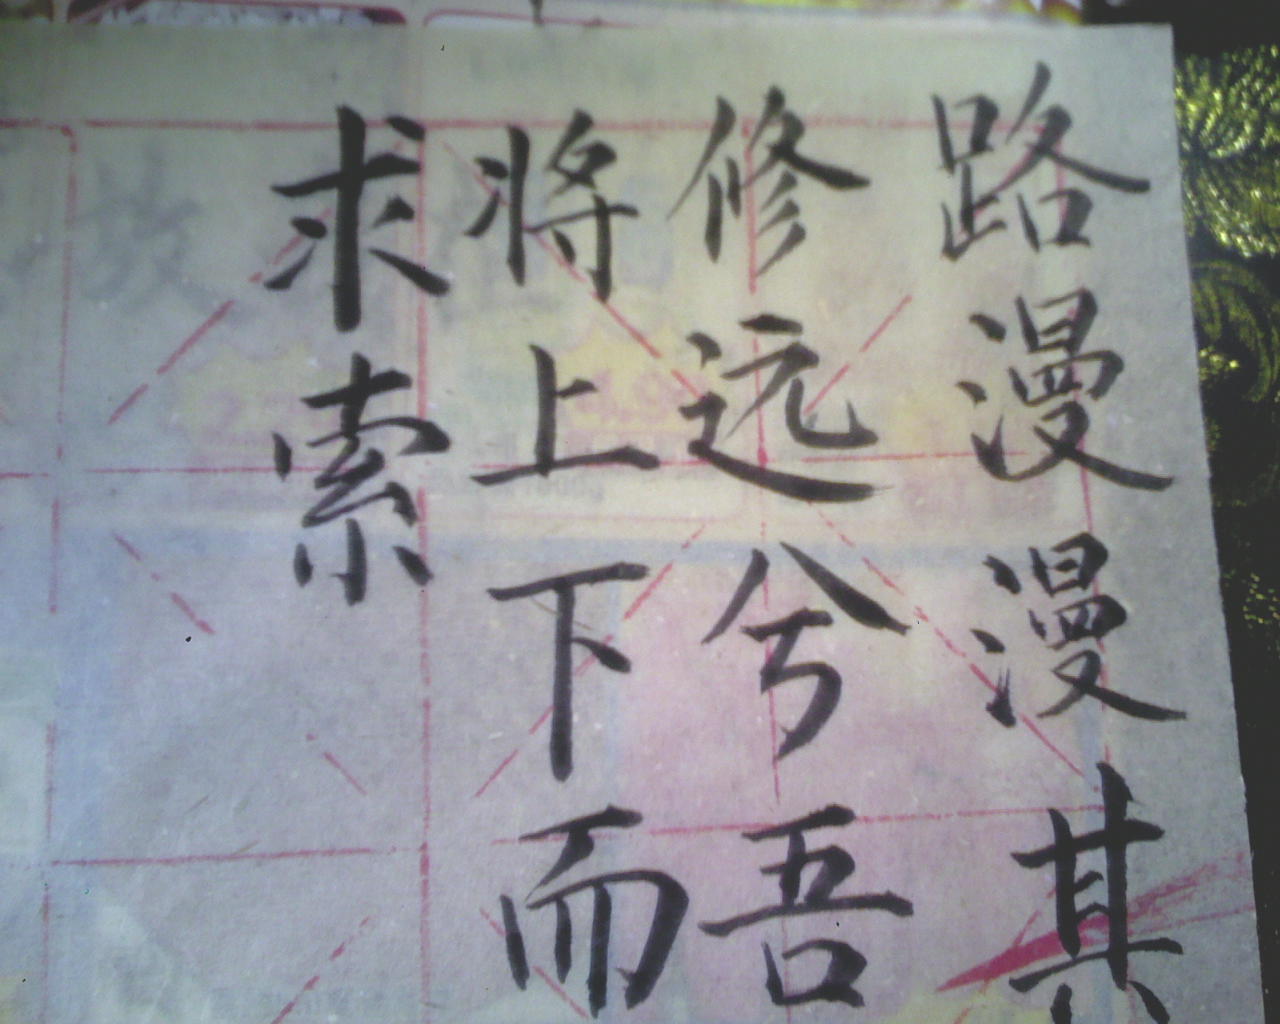 路漫漫其
修远兮吾
将上下而
求索